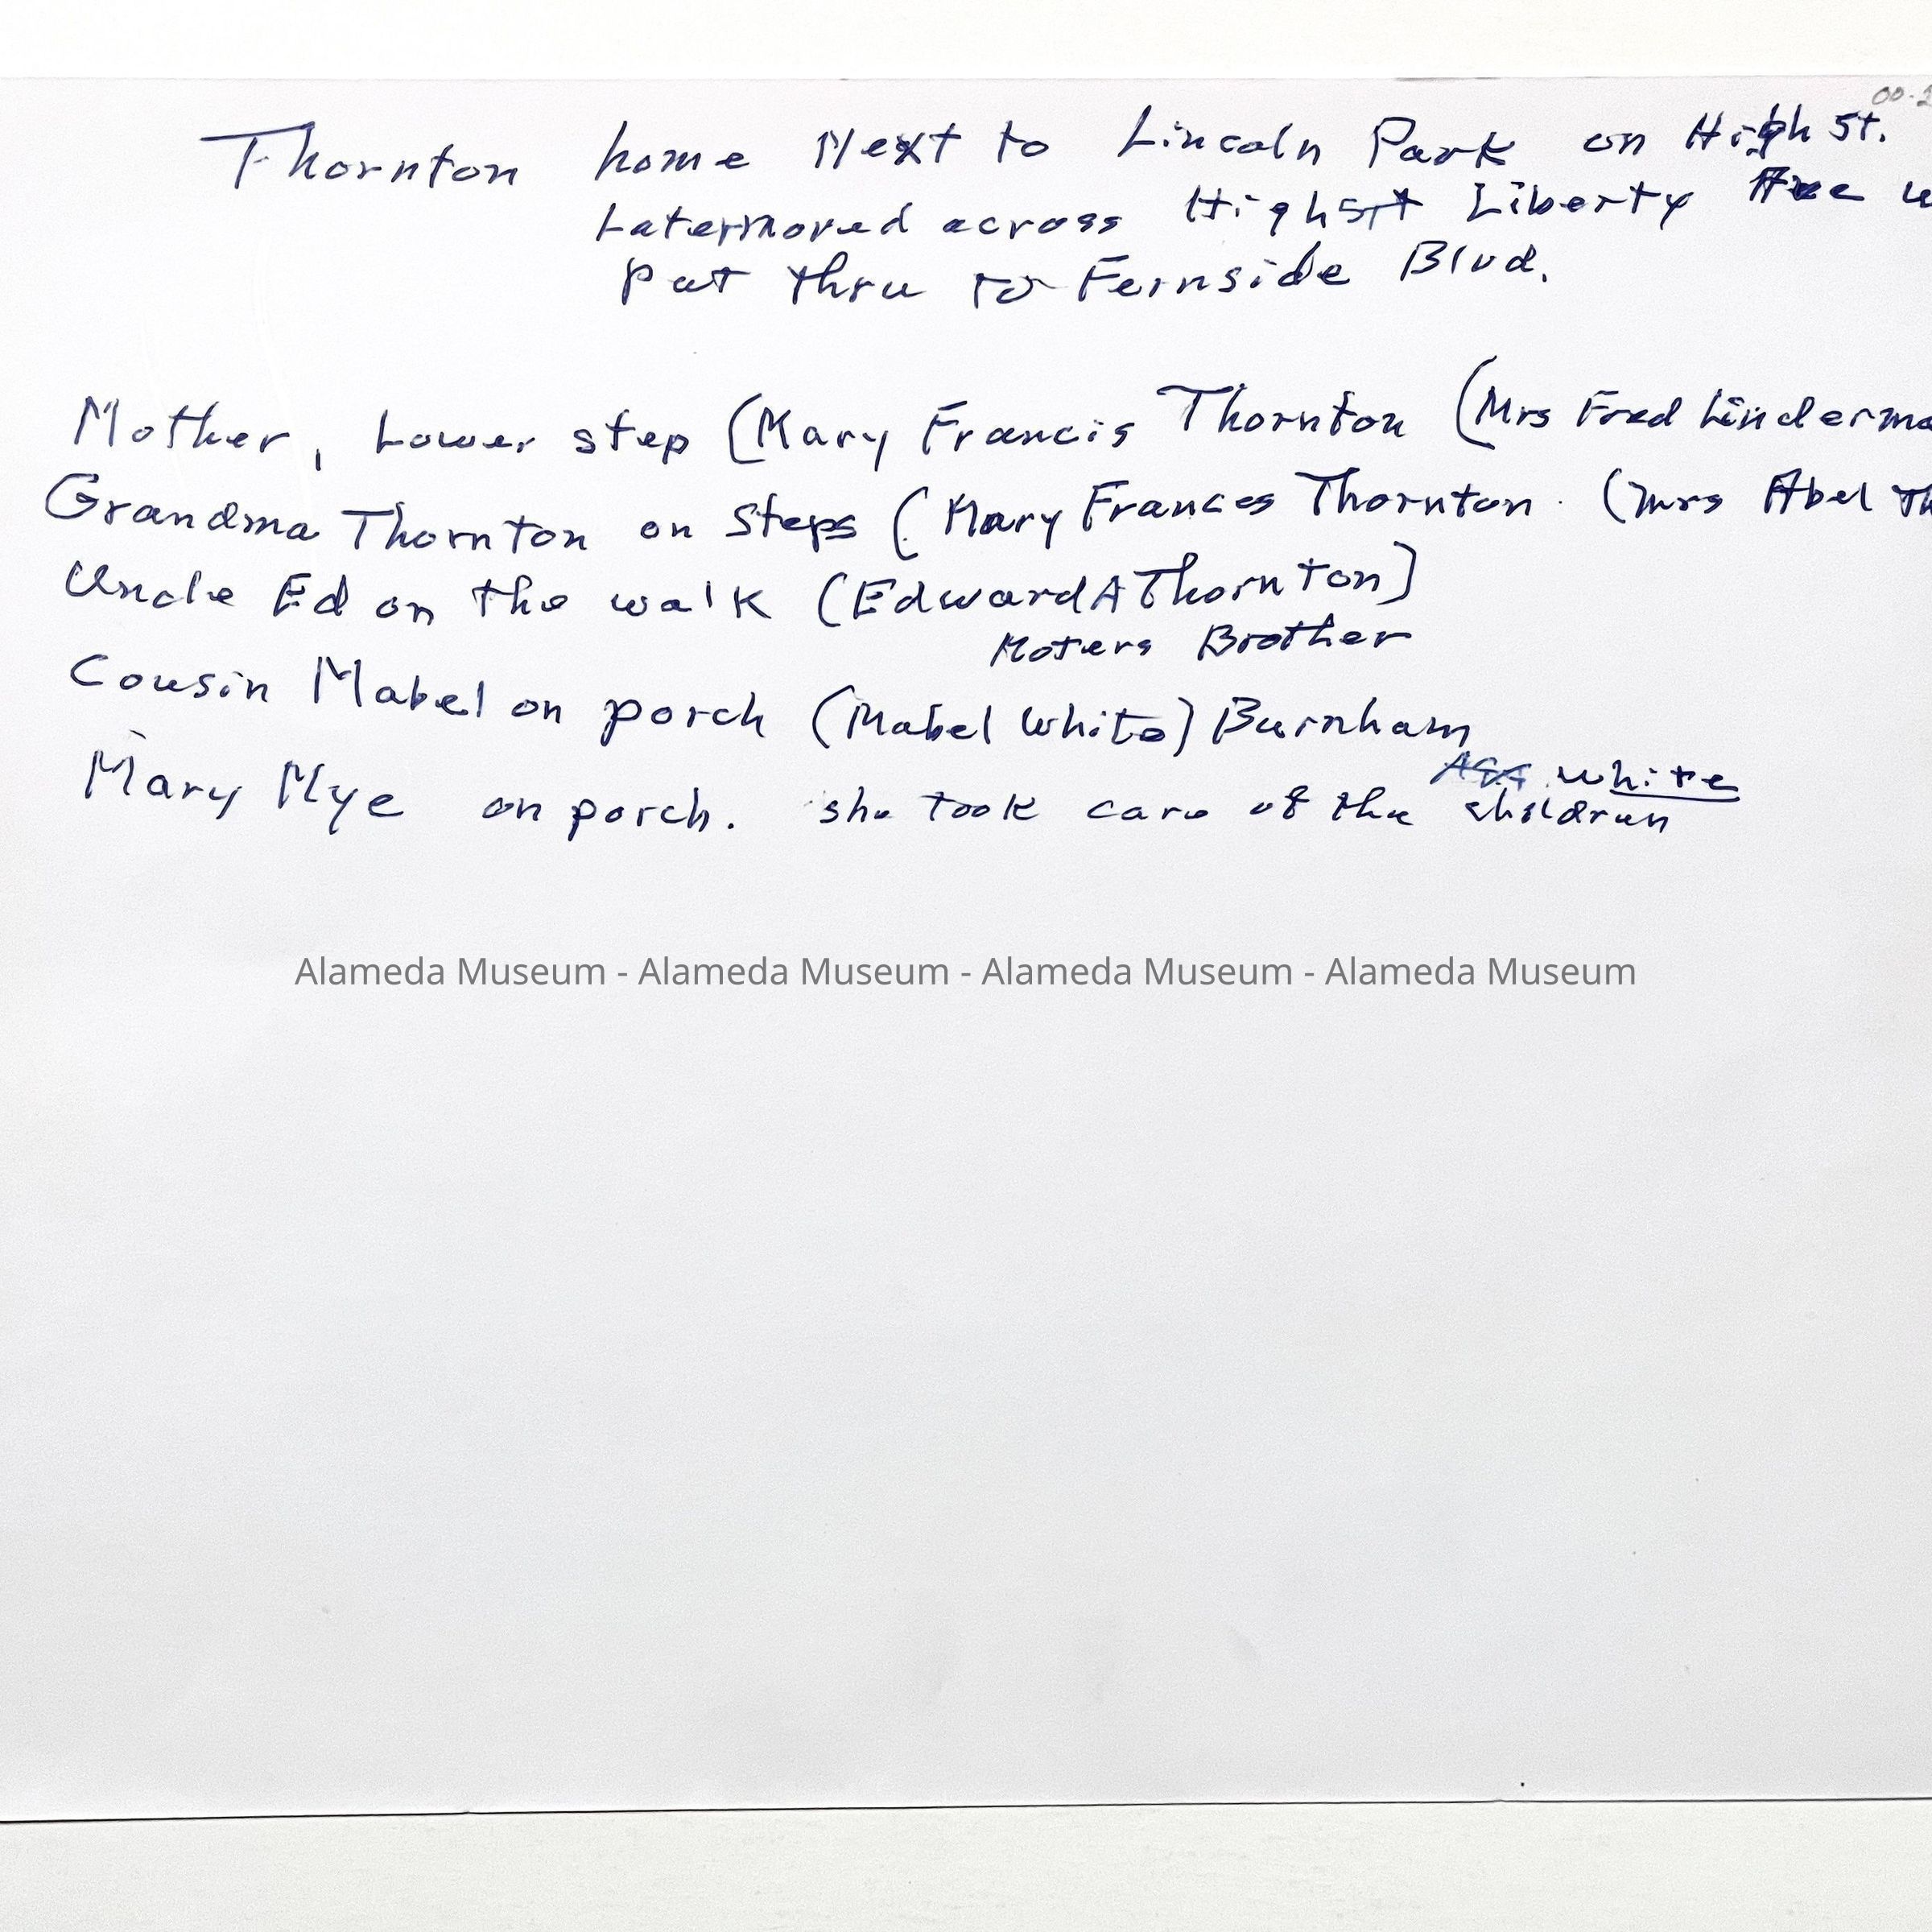 00-
Thornton home Next to Lincoln Park on High St.
Later moved across High St Liberty Ave
put thru to Fernside Blvd.
Mother, Lower step (Mary Francis Thornton (Mrs Fred Linderma
Grandma Thornton on Steps (Mary Frances Thornton. (Mrs Abel Th
Uncle Ed on the walk (Edward A Thornton)
Moters Brother
Cousin Mabel on porch (Mabel White) Burnham
Mary Nye on porch. she took care of the White children
Alameda Museum - Alameda Museum - Alameda Museum - Alameda Museum